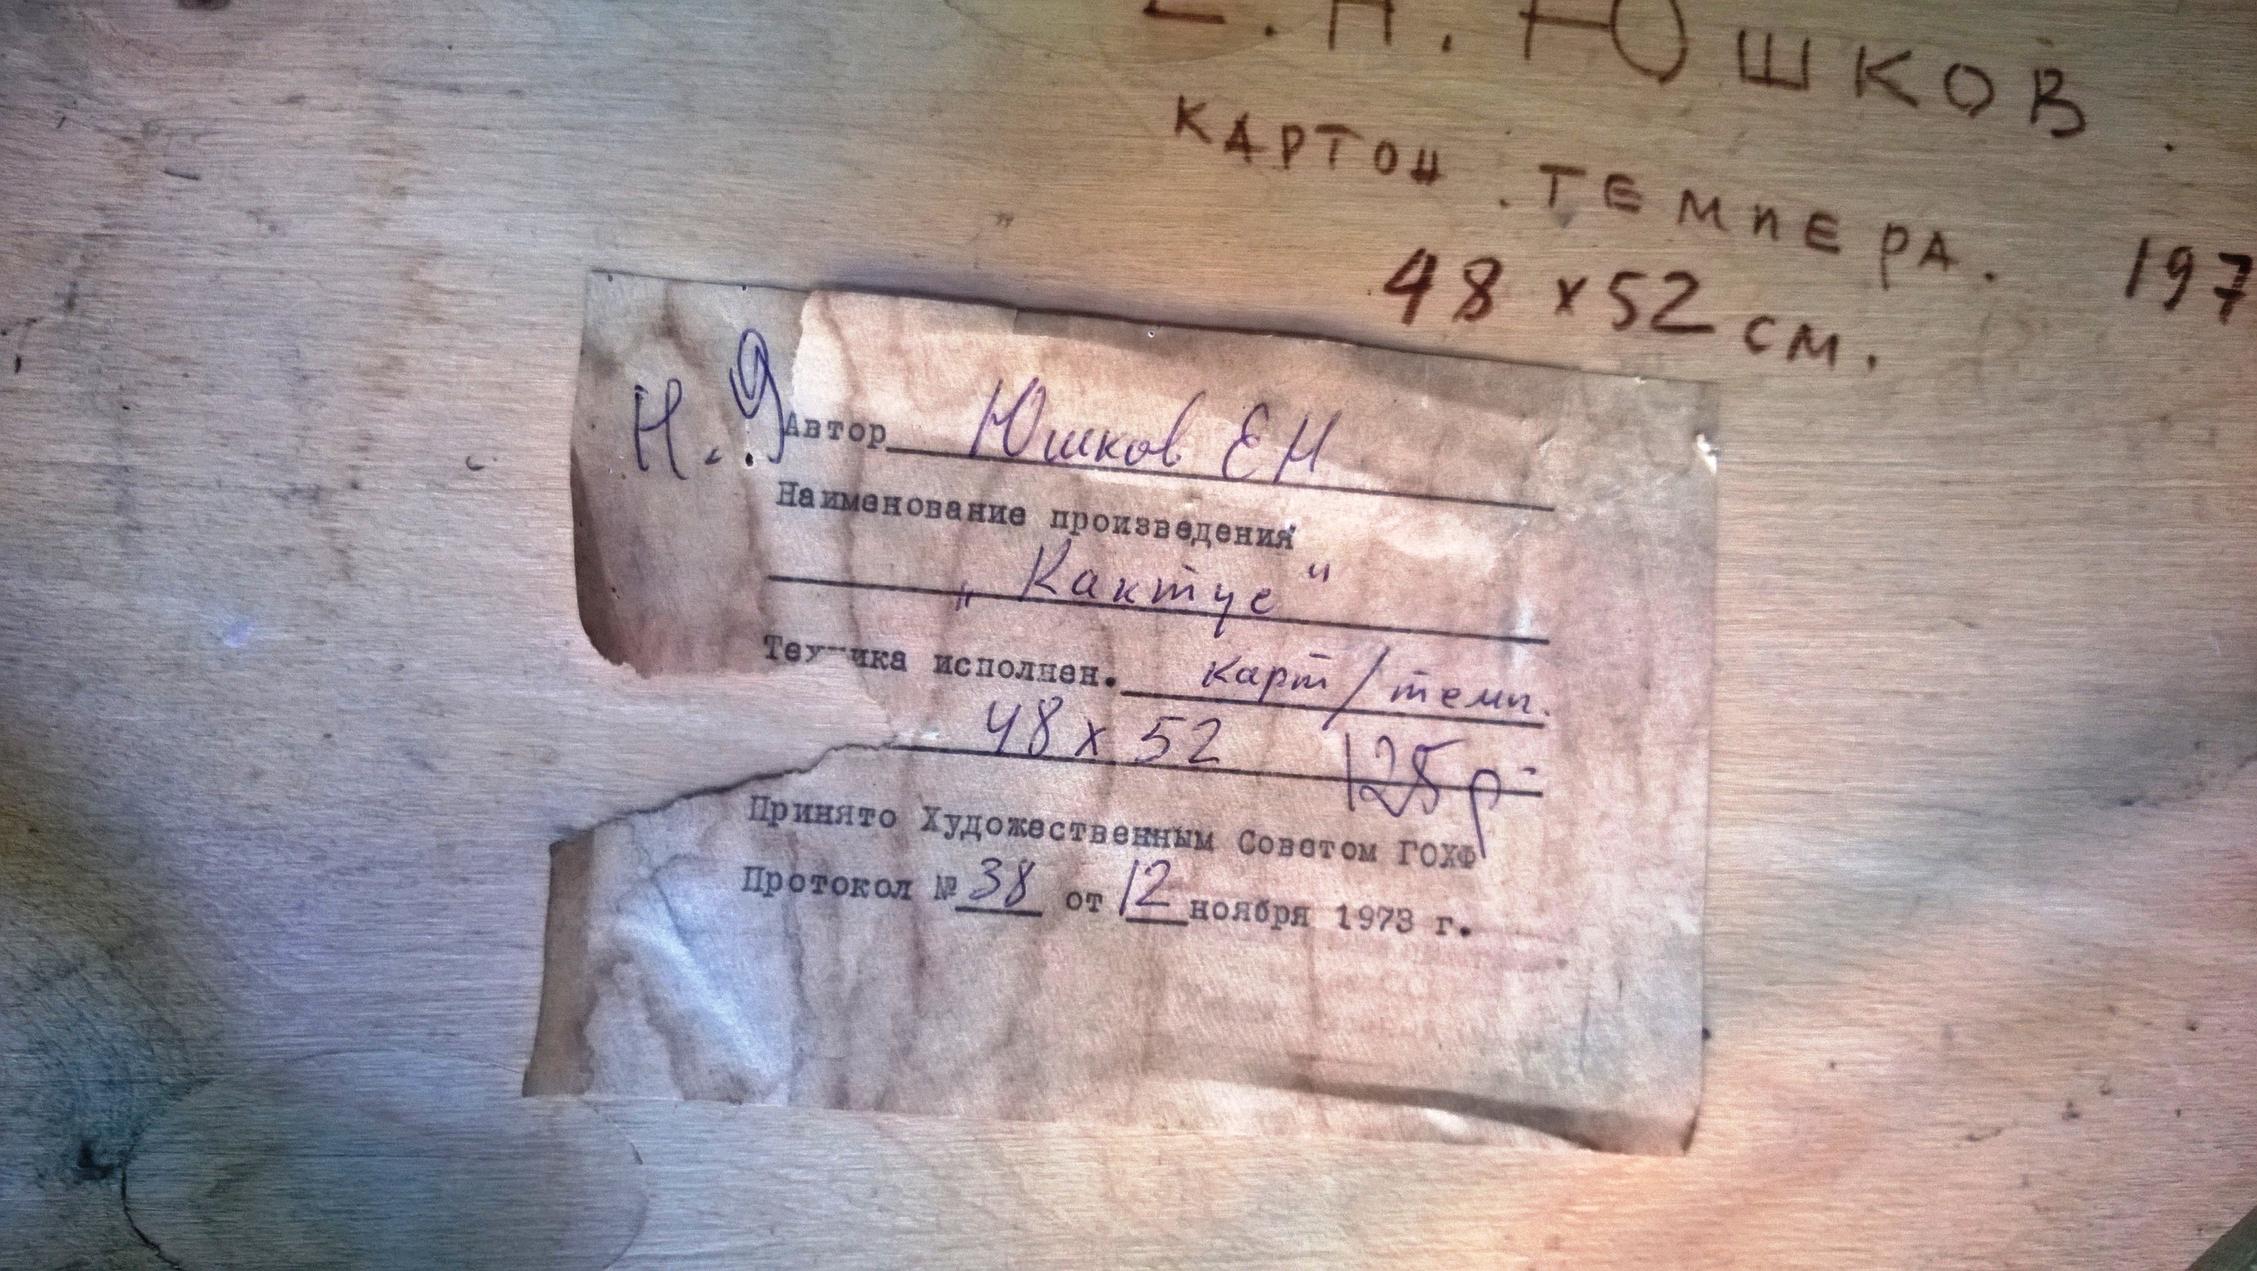 Е.Н. Юшков.
КАРТОН. ТЕМПЕРА. 197
48 x 52 см.
Н.
Автор Юшков ЕН
Наименование произведения
„Кактус"
Техника исполнен. карт/темп.
48 x 52 125р-
Принято Художественным Советом ГОХФ
Протокол № 38 от 12 ноября 1973 г.